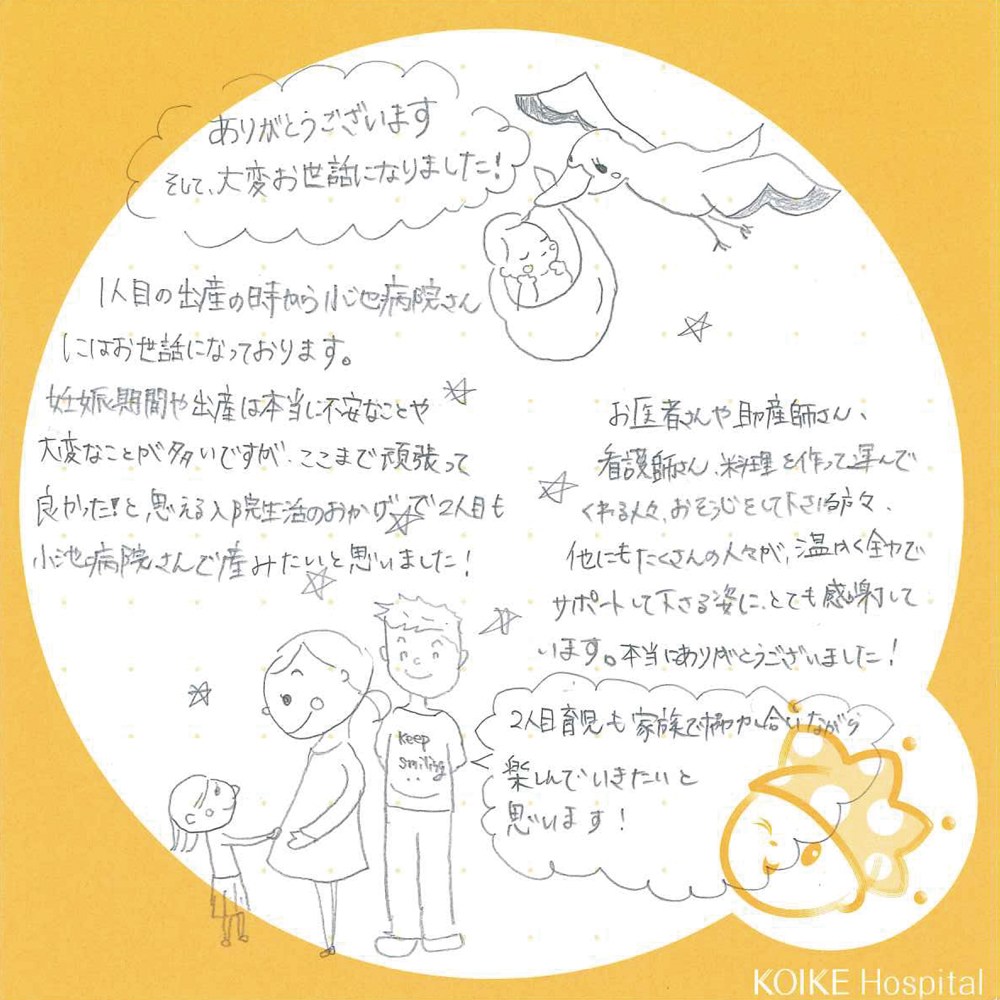 ありがとうございます
そして、大変お世話になりました!
1人目の出産の時から小池病院さん
にはお世話になっております。
妊娠期間や出産は本当に不安なことや
大変なことが多いですが、ここまで頑張って
良かった!!と思える入院生活のおかげで2人目も
小池病院さんで産みたいと思いました!
お医者さんや助産師さん、
看護師さん、料理を作って運んで
くれる人々、おそうじをして下さる方々、
他にもたくさんの人々が、温かく全力で
サポートして下さる姿に、とても感謝して
います。本当にありがとうございました!
keep
smiling
2人目育児も家族で協力し合いながら
楽しんでいきたいと
思います!
KOIKE Hospital